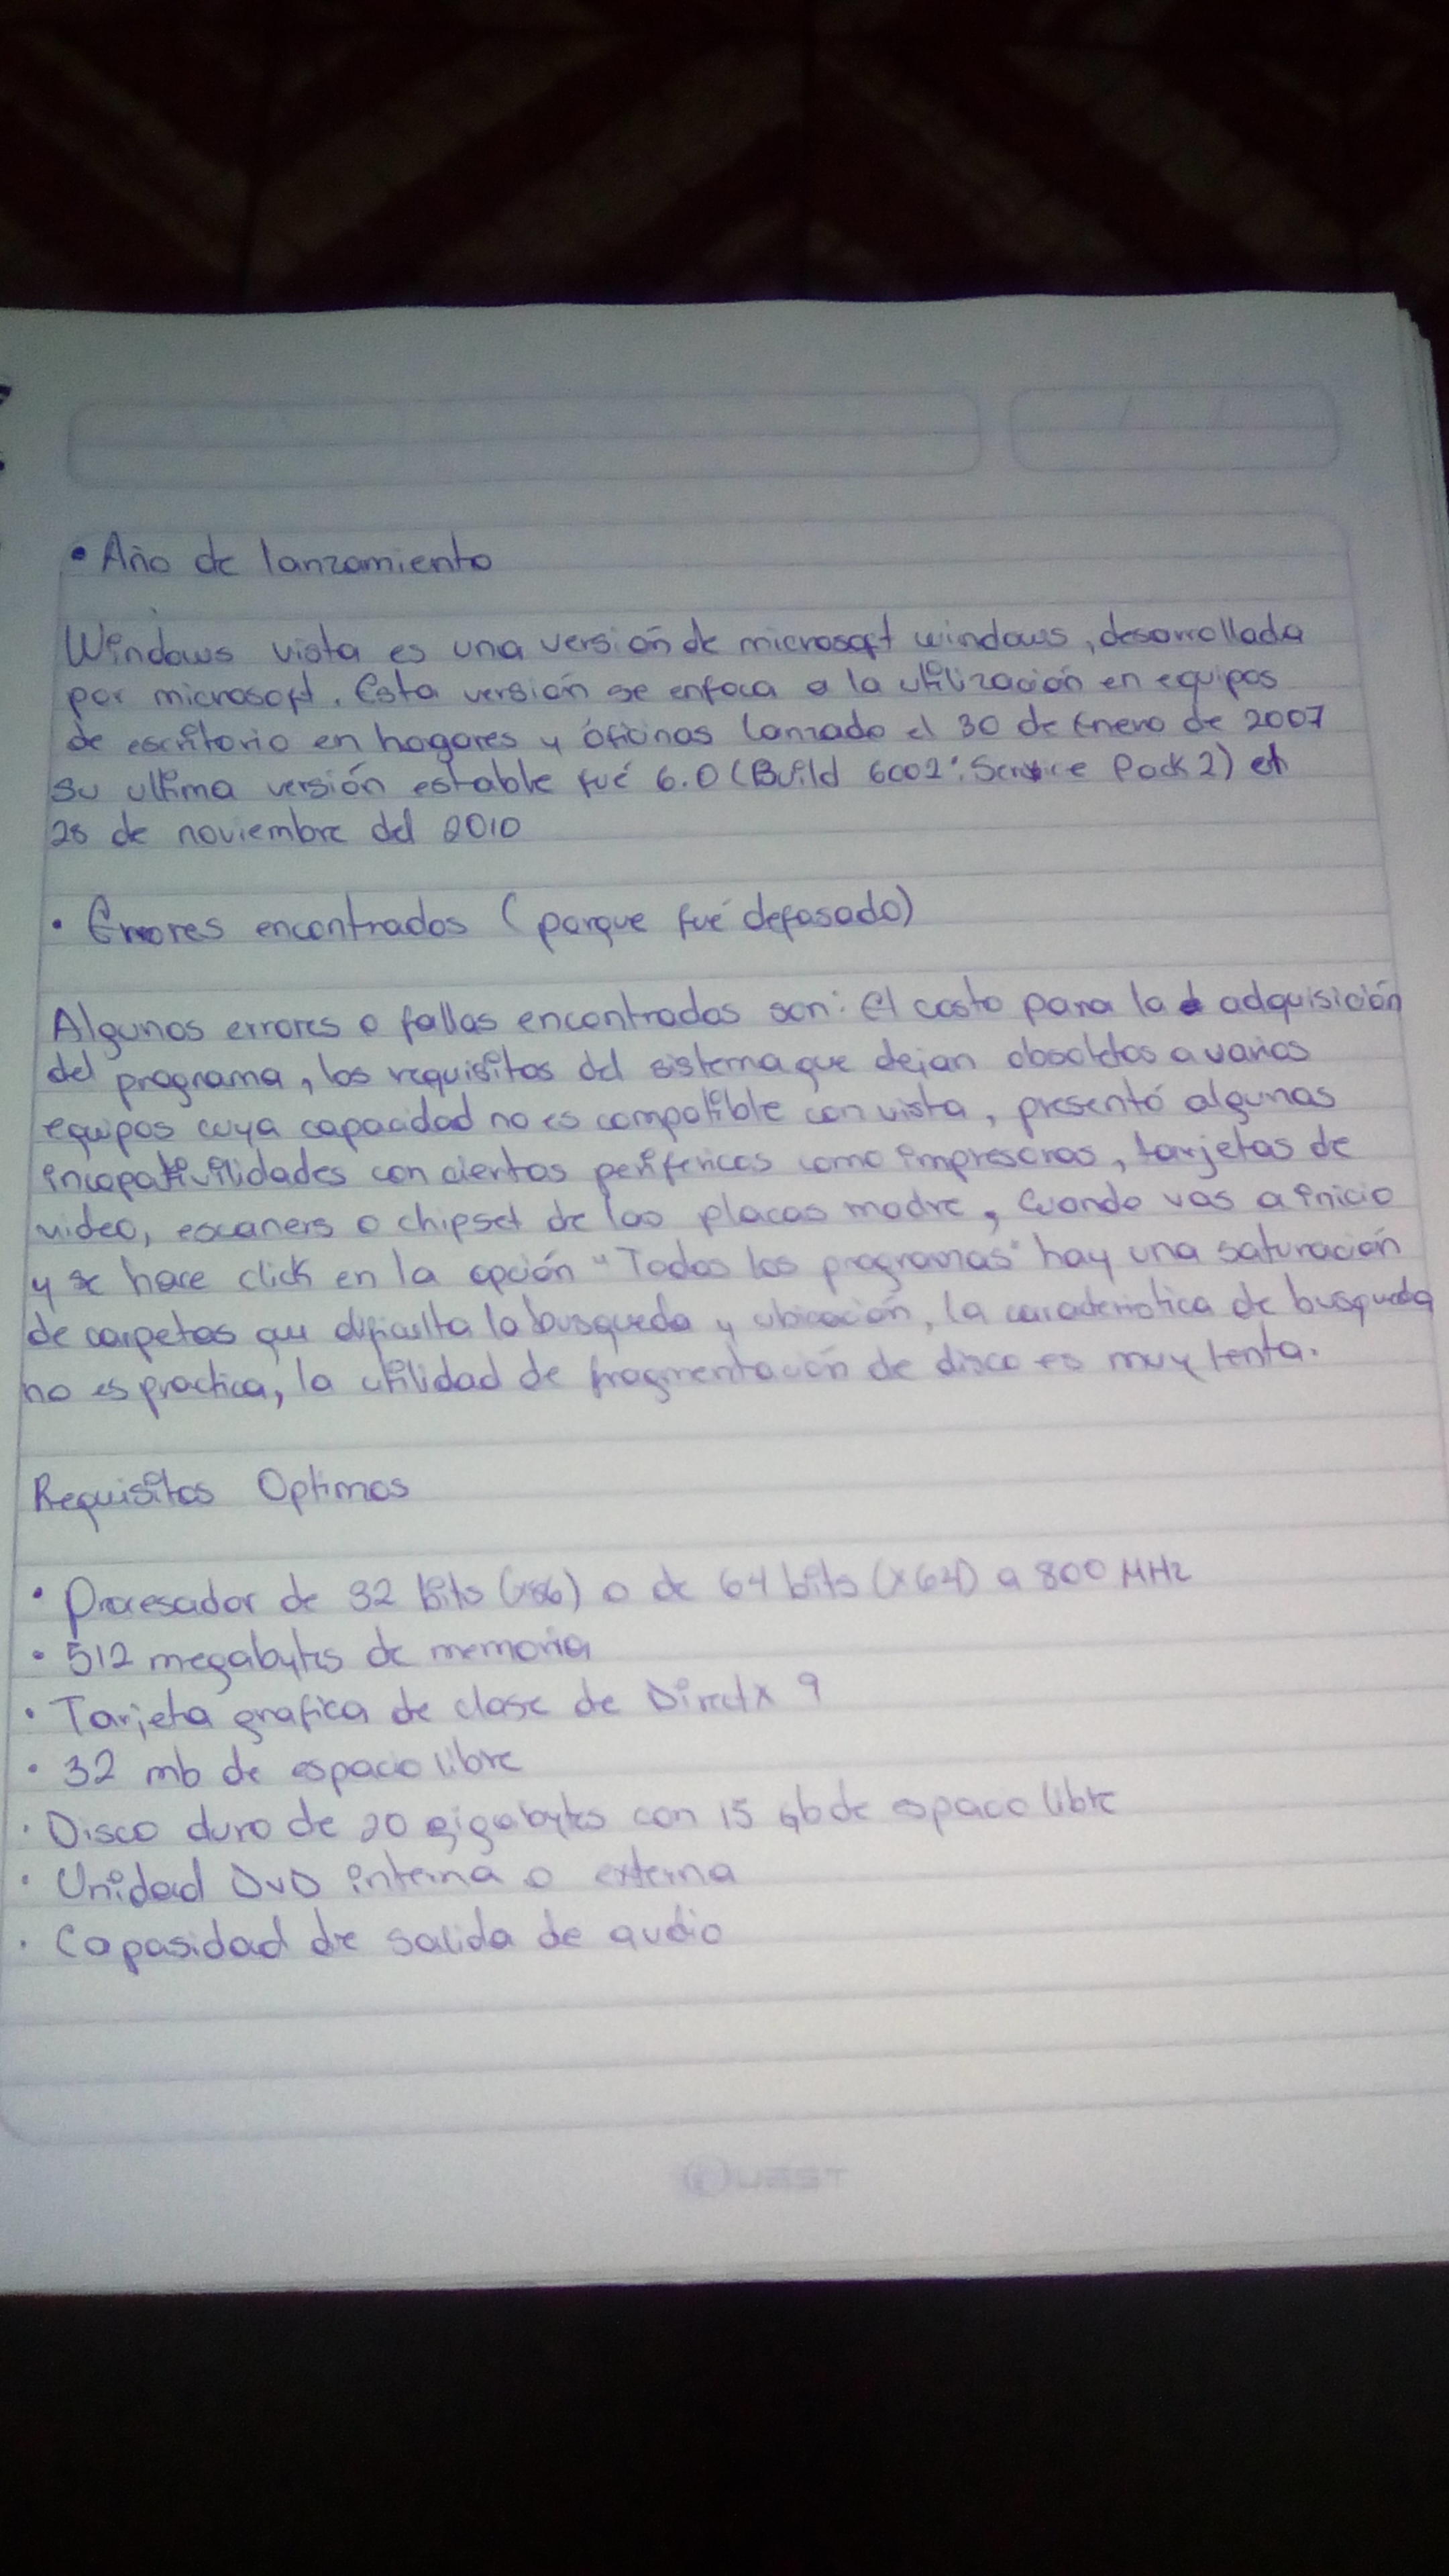 • Año de lanzamiento
Windows vista es una versión de microsoft windows, desarrollada
por microsoft. Esta versión se enfoca a la utilización en equipos
de escritorio en hogares y oficinas lanzado el 30 de Enero de 2007
su ultima versión estable fué 6.0 (Build 6002: Service Pack 2) el
28 de noviembre del 2010
• Errores encontrados (porque fué defasado)
Algunos errores o fallas encontrados son: El costo para la adquisición
del programa, los requisitos del sistema que dejan obsoletos a varios
equipos cuya capacidad no es compatible con vista, presentó algunas
incopativilidades con ciertos perifericos como impresoras, tarjetas de
video, escaners o chipset de las placas madre, Cuando vas a inicio
y se hace click en la opción "Todos los programas" hay una saturación
de carpetas que dificulta la busqueda y ubicación, la caracteristica de busqueda
no es practica, la utilidad de fragmentación de disco es muy lenta.
Requisitos Optimos
• Procesador de 32 bits (x86) o de 64 bits (x64) a 800 MHz
• 512 megabytes de memoria
• Tarjeta grafica de clase de Directx 9
• 32 mb de espacio libre
• Disco duro de 20 gigabytes con 15 gb de espacio libre
• Unidad DVD interna o externa
• Capasidad de salida de audio
QUEST